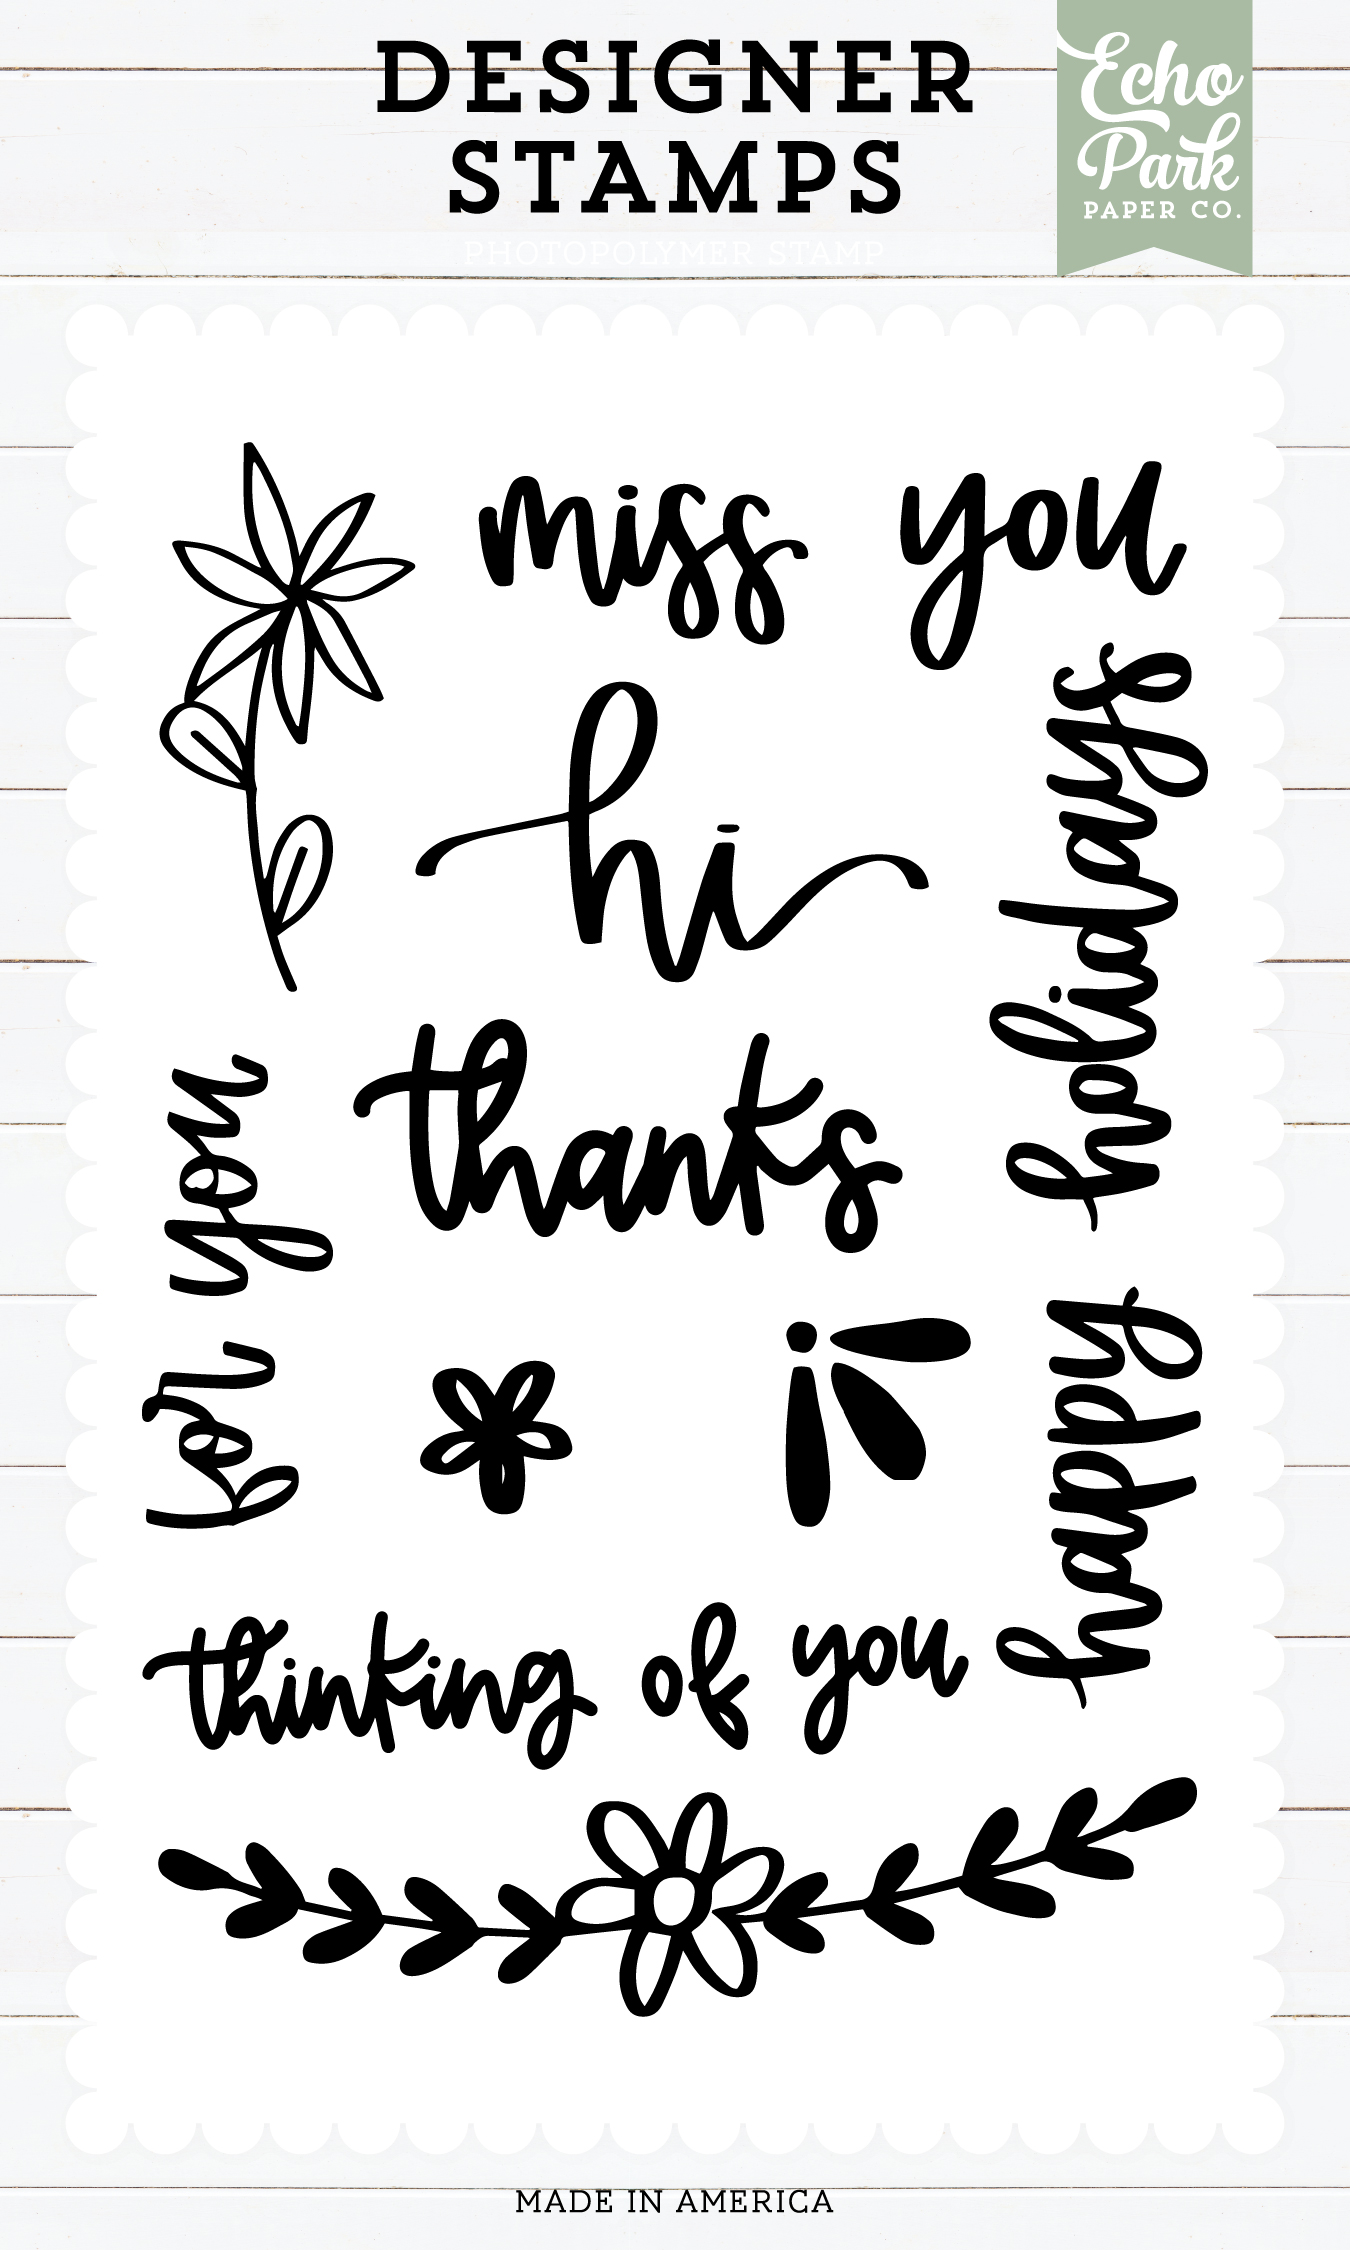 DESIGNER
STAMPS
Echo
Park
PAPER CO.
PHOTOPOLYMER STAMP
miss you
hi
thanks
happy holidays
for you
thinking of you
MADE IN AMERICA